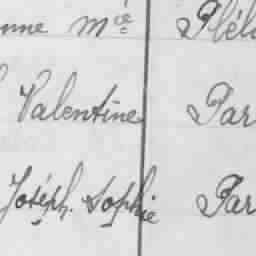 nne mcé Plél
Valentine Par
Joséph. Sophie Par